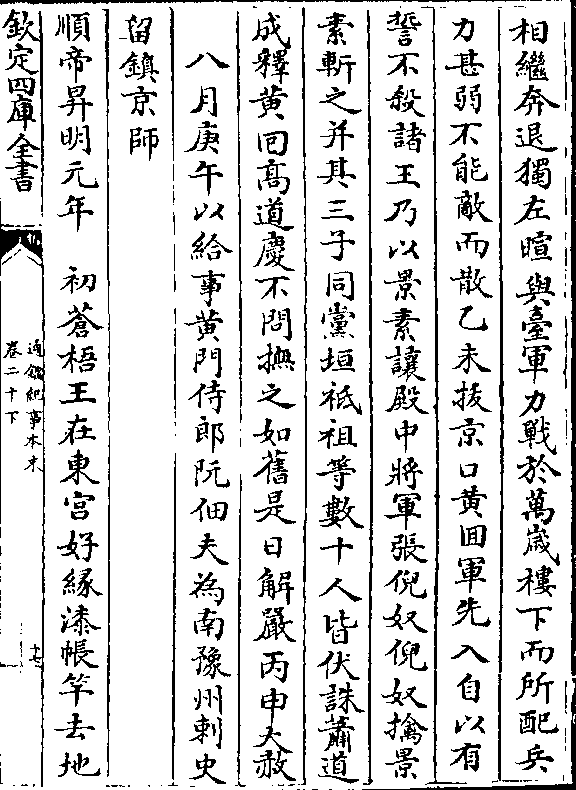 相繼奔退獨左暄與臺軍力戰於萬歲樓下而所配兵
力甚弱不能敵而散乙未拔京口黄囘軍先入自以有
誓不殺諸王乃以景素讓殿中將軍張倪奴倪奴擒景
素斬之并其三子同黨垣祇祖等數十人皆伏誅蕭道
成釋黄囘高道慶不問撫之如舊是日解嚴丙申大赦
八月庚午以給事黄門侍郎阮佃夫為南豫州刺史
留鎮京師
順帝昇明元年　初蒼梧王在東宫好緣漆帳竿去地
欽定四庫全書
通鑑紀事本末
卷二十下
十七